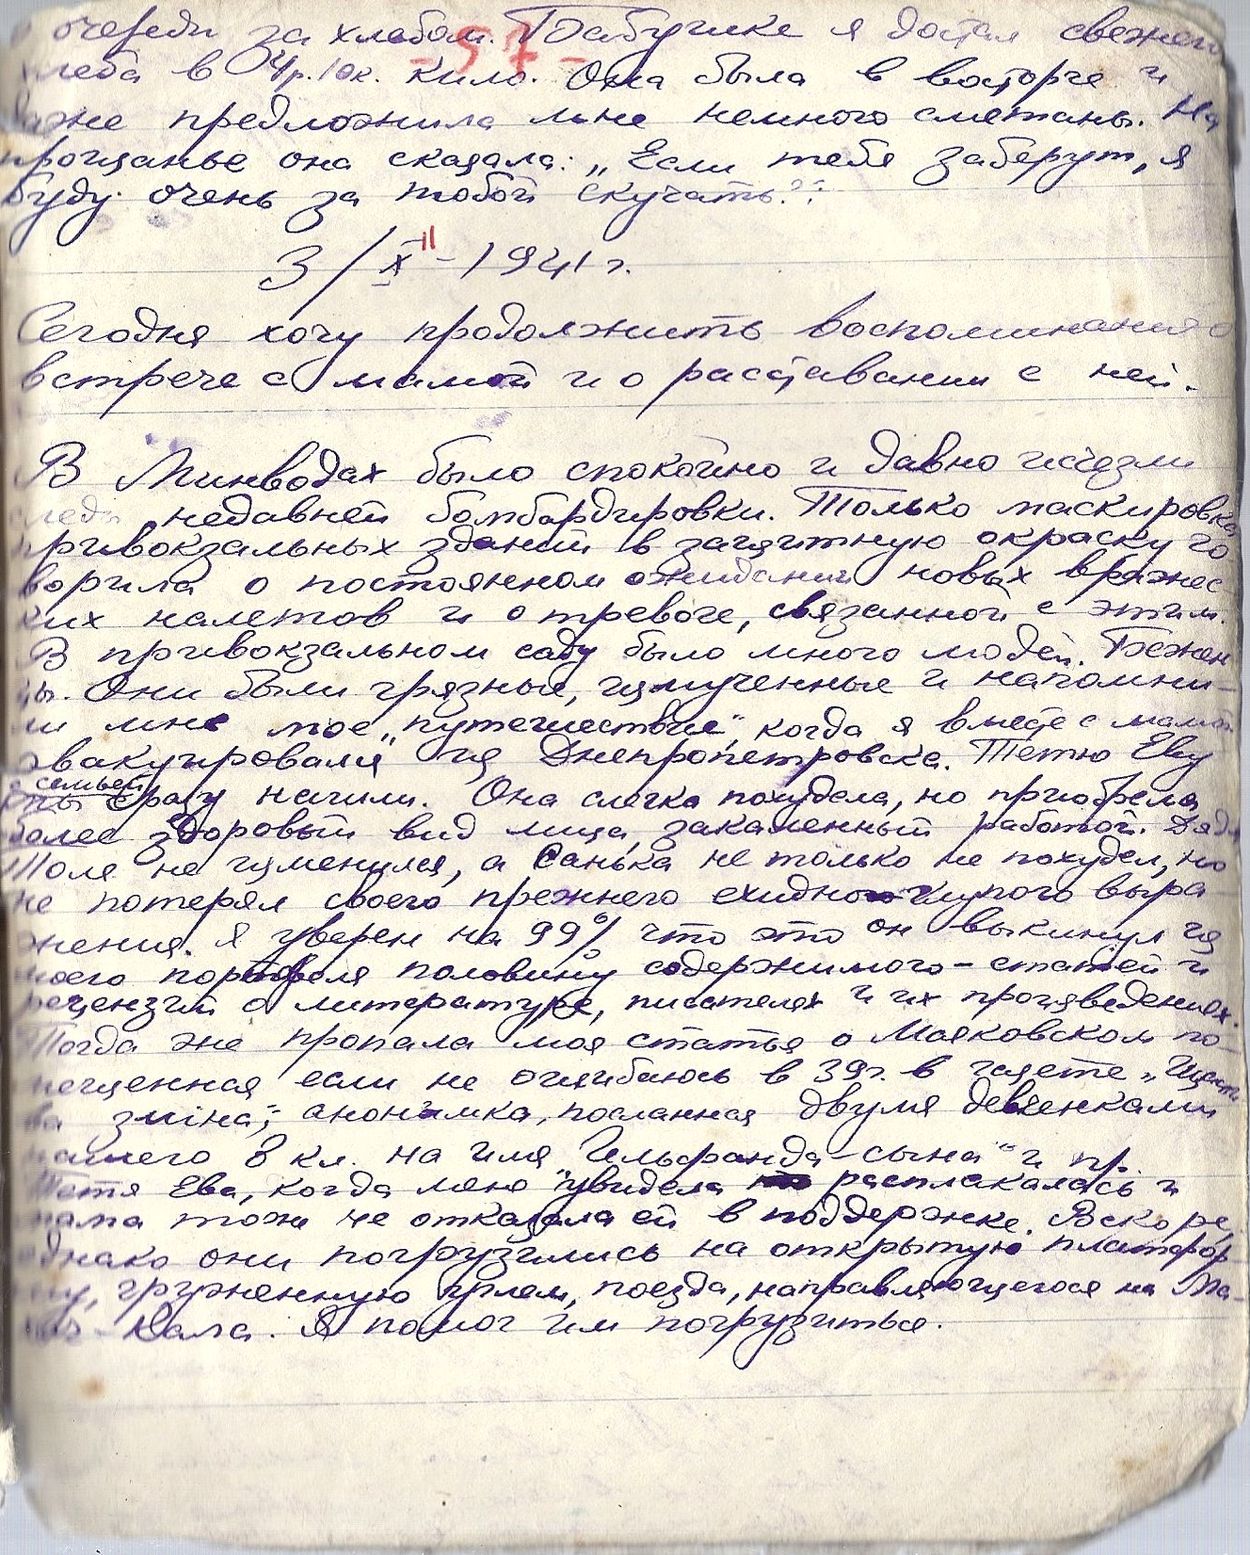 в очереди за хлебом. Бабушке я достал свежего
- 57 -
хлеба в 4р. 10к. кило. Она была в восторге и
даже предложила мне немного сметаны. На
прощанье она сказала: „Если тебя заберут, я
буду очень за тобой скучать“.
3/XII-1941 г.
Сегодня хочу продолжить воспоминания о
встрече с мамой и о расставании с ней.
В Минводах было спокойно и давно исчезли
следы недавней бомбардировки. Только маскировка
привокзальных зданий в защитную окраску го-
ворила о постоянном ожидании новых вражес-
ких налетов и о тревоге, связанной с этим.
В привокзальном саду было много людей. Бежен-
цы. Они были грязные, измученные и напомни-
ли мне мое „путешествие“, когда я вместе с мамой
эвакуировался из Днепропетровска. Тетю Еву
с семьей
мы сразу нашли. Она слегка похудела, но приобрела
более здоровый вид лица, закаленный работой. Дядя
Толя не изменился, а Санька не только не похудел, но
не потерял своего прежнего ехидно-глупого выра-
жения. Я уверен на 99% что это он выкинул из
моего портфеля половину содержимого – статей и
рецензий о литературе, писателях и их произведениях.
Тогда же пропала моя статья о Маяковском по-
мещенная если не ошибаюсь в 39г. в газете „Щасли
ва зміна“; анонимка, посланная двумя девченками
нашего 8 кл. на имя Гельфанда-сына“ и пр.
Тетя Ева, когда меня увидела расплакалась и
мама тож не отказала ей в поддержке. Вскоре,
однако они погрузились на открытую платфор-
му, груженную углем, поезда, направляющегося на Ма-
хач-Кала. Я помог им погрузиться.